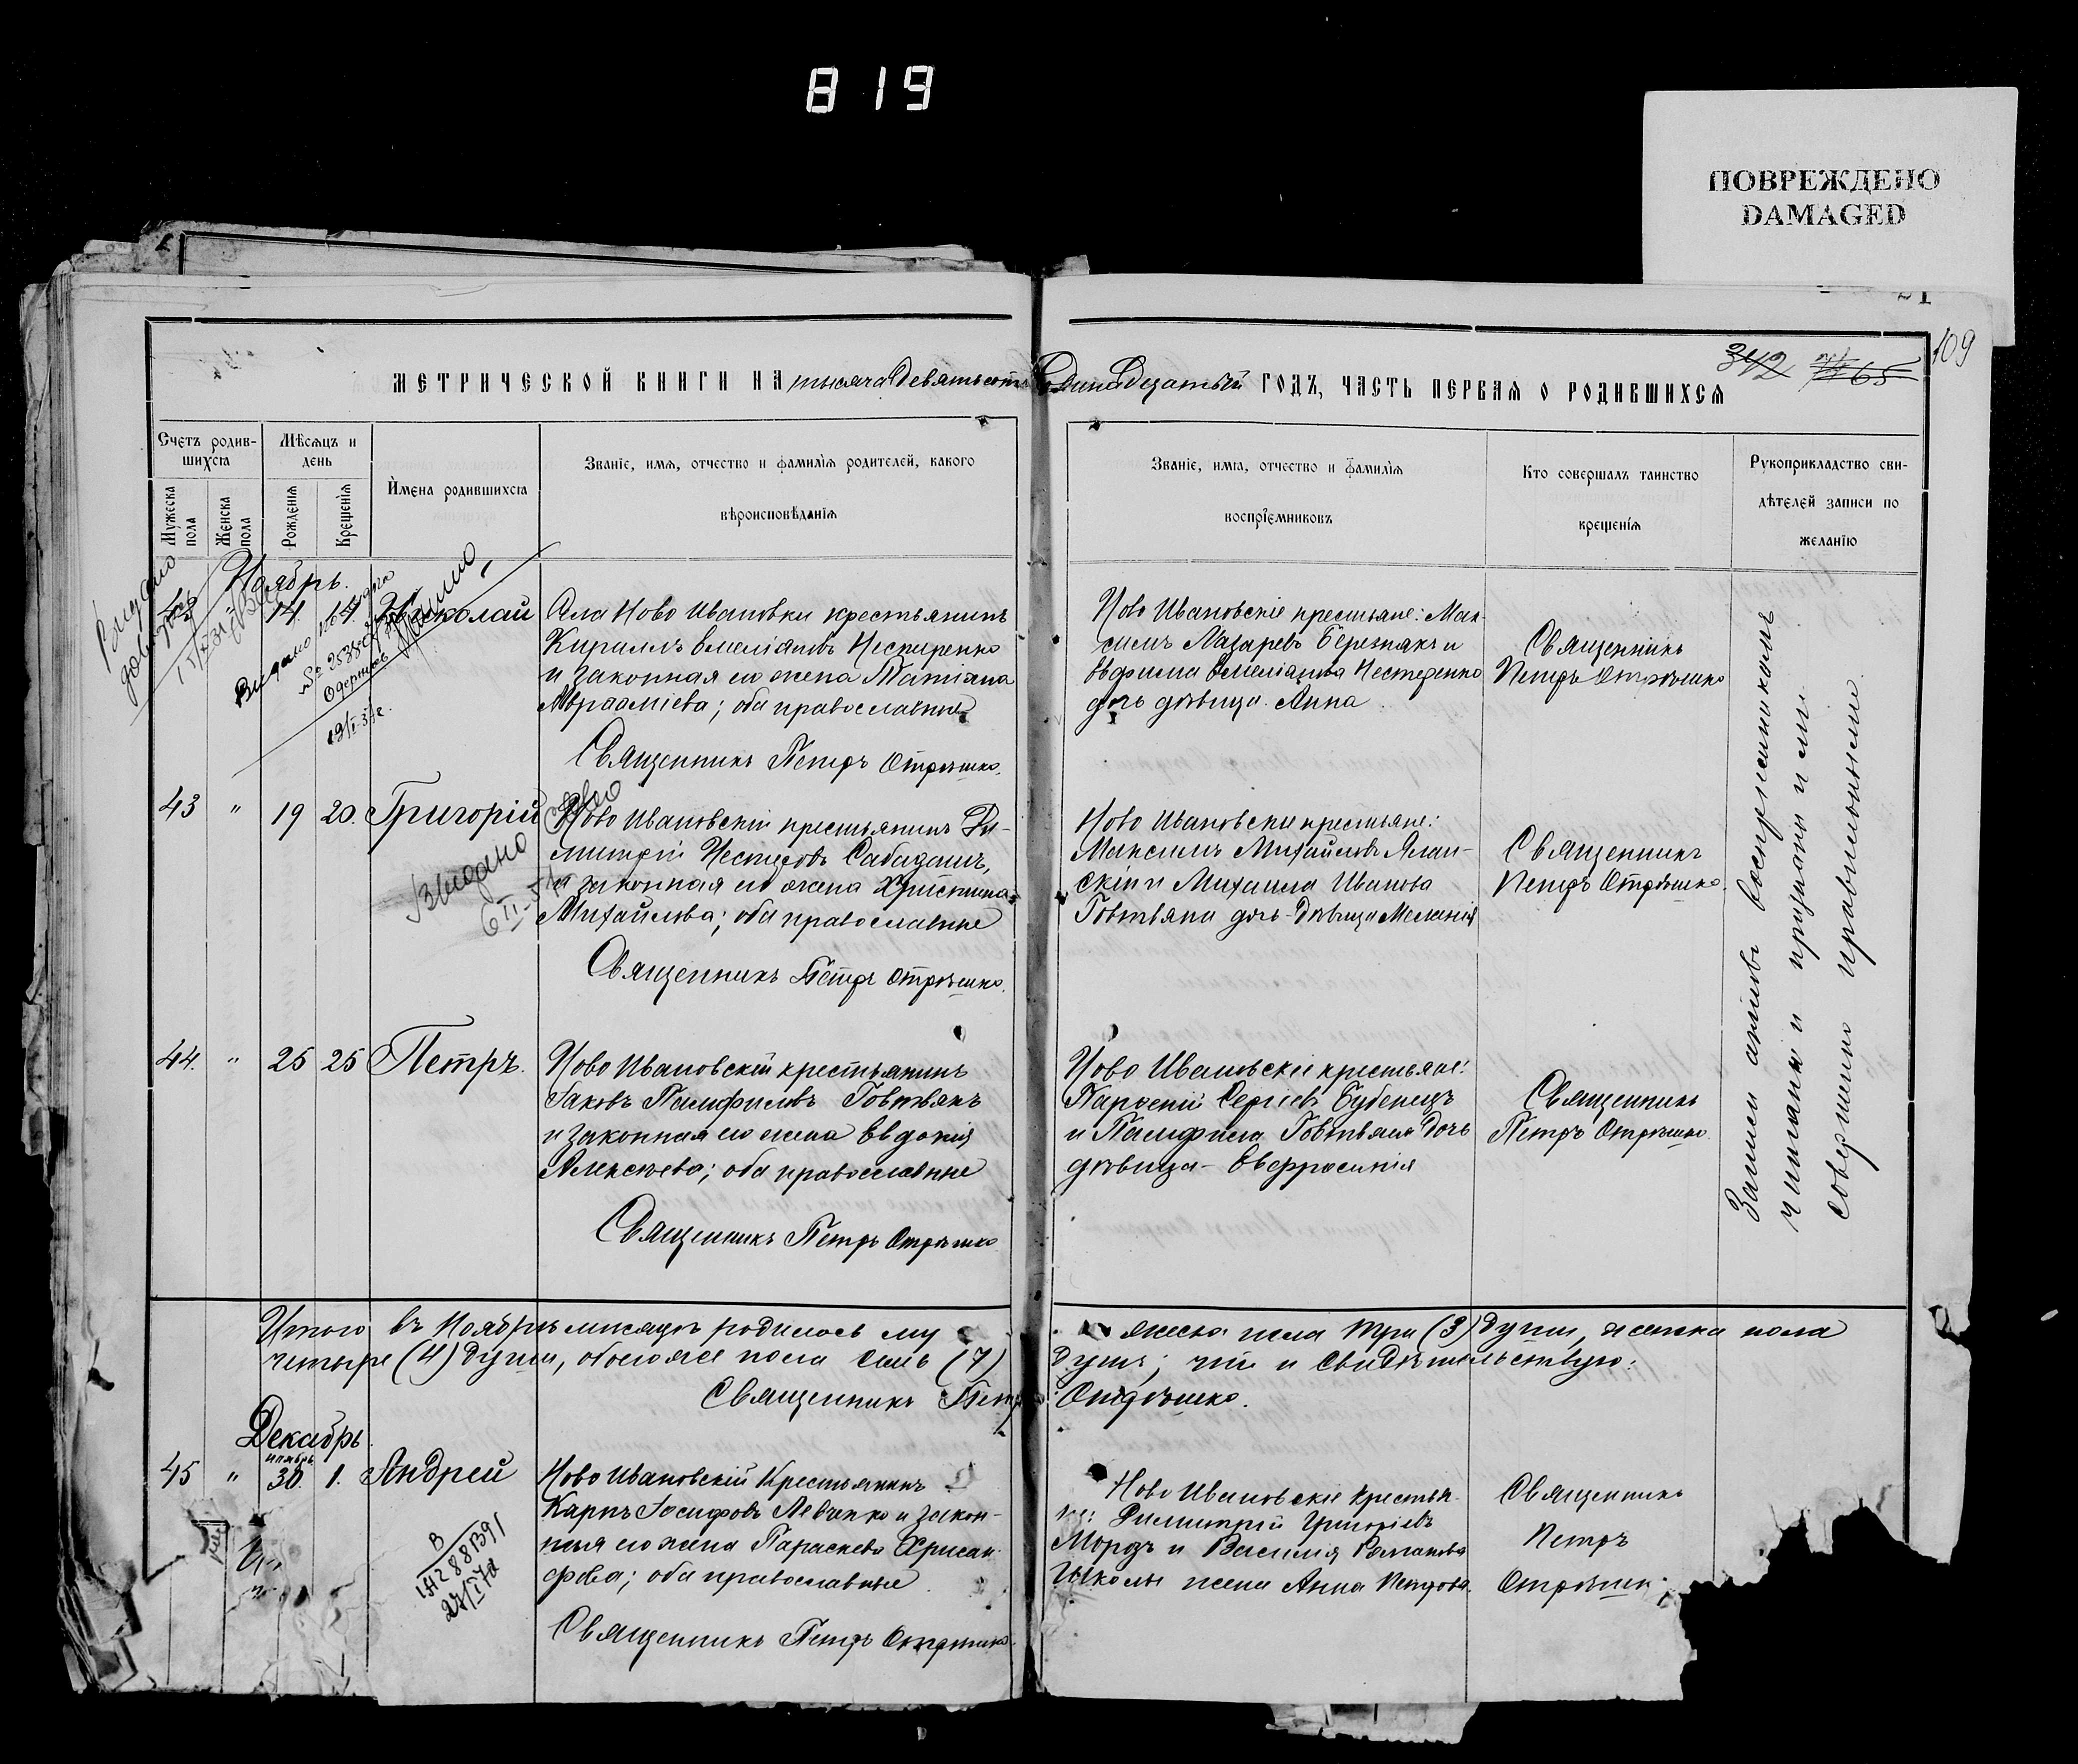 819
ПОВРЕЖДЕНО
DAMAGED
109
342 65
МЕТРИЧЕСКОЙ КНИГИ НА тысяча девятьсотъ Одинадцатый ГОДЪ, ЧАСТЬ ПЕРВАЯ О РОДИВШИХСЯ
Счетъ родив-
шихся
Мужеска пола
Женска пола
Мѣсяцъ и
день
Рожденія
Крещенія
Имена родившихся
Званіе, имя, отчество и фамилія родителей, какого
вѣроисповѣданія
Званіе, имя, отчество и фамилія
воспріемниковъ
Кто совершалъ таинство
крещенія
Рукоприкладство сви-
дѣтелей записи по
желанію
Ноябрь.
Видано
14 Николай
Села Ново Ивановки крестьянинъ
Кириллъ Емеліановъ Нестеренко
и законная его жена Татіана
Авраамиева; оба православные
Священникъ Петръ Отрѣшко.
Ново Ивановскіе крестьяне: Мак-
симъ Лазаревъ Березнякъ и
Евфима Емеліанова Нестеренко
дочь дѣвица Анна
Священникъ
Петръ Отрѣшко
43 " 19 20. Григорій
Видано
6 II-51
Ново Ивановскій крестьянинъ Ди-
митрій Нестеровъ Сабадашъ,
и законная его жена Христина
Михайлова; оба православные
Священникъ Петръ Отрѣшко.
Ново Ивановскіе крестьяне:
Максимъ Михайловъ Ялан-
скій и Михаила Иванова
Говтвяна дочь-дѣвица Меланія
Священникъ
Петръ Отрѣшко.
44. " 25 25 Петръ.
Ново Ивановскій крестьянинъ
Іаковъ Памфиловъ Говтвянъ
и законная его жена Евдокія
Алексѣева; оба православные
Священникъ Петръ Отрѣшко
Ново Ивановскіе крестьяне:
Парфеній Сергіевъ Бубенецъ
и Памфила Говтвяна дочь
дѣвица - Евфросинія
Священникъ
Петръ Отрѣшко.
Записи актовъ воспріемникамъ
читаны и признаны ими
совершенно правильными
Итого въ Ноябрѣ мѣсяцѣ родилось му жеска пола три (3) души, женска пола
четыре (4) души, обоего пола семь (7) душъ; что и свидѣтельствую:
Священникъ Петръ Отрѣшко.
Декабрь.
ноябрь
45 " 30. 1. Андрей
27/I 70
Ново Ивановскій Крестьянинъ
Карпъ Іосифовъ Левченко и закон-
ная его жена Параскева Хрисан-
фова; оба православные
Священникъ Петръ Отрѣшко.
Ново Ивановскіе крестья-
не: Димитрій Григоріевъ
Морозъ и Василія Романова
Школы жена Анна Петрова.
Священникъ
Петръ
Отрѣшк